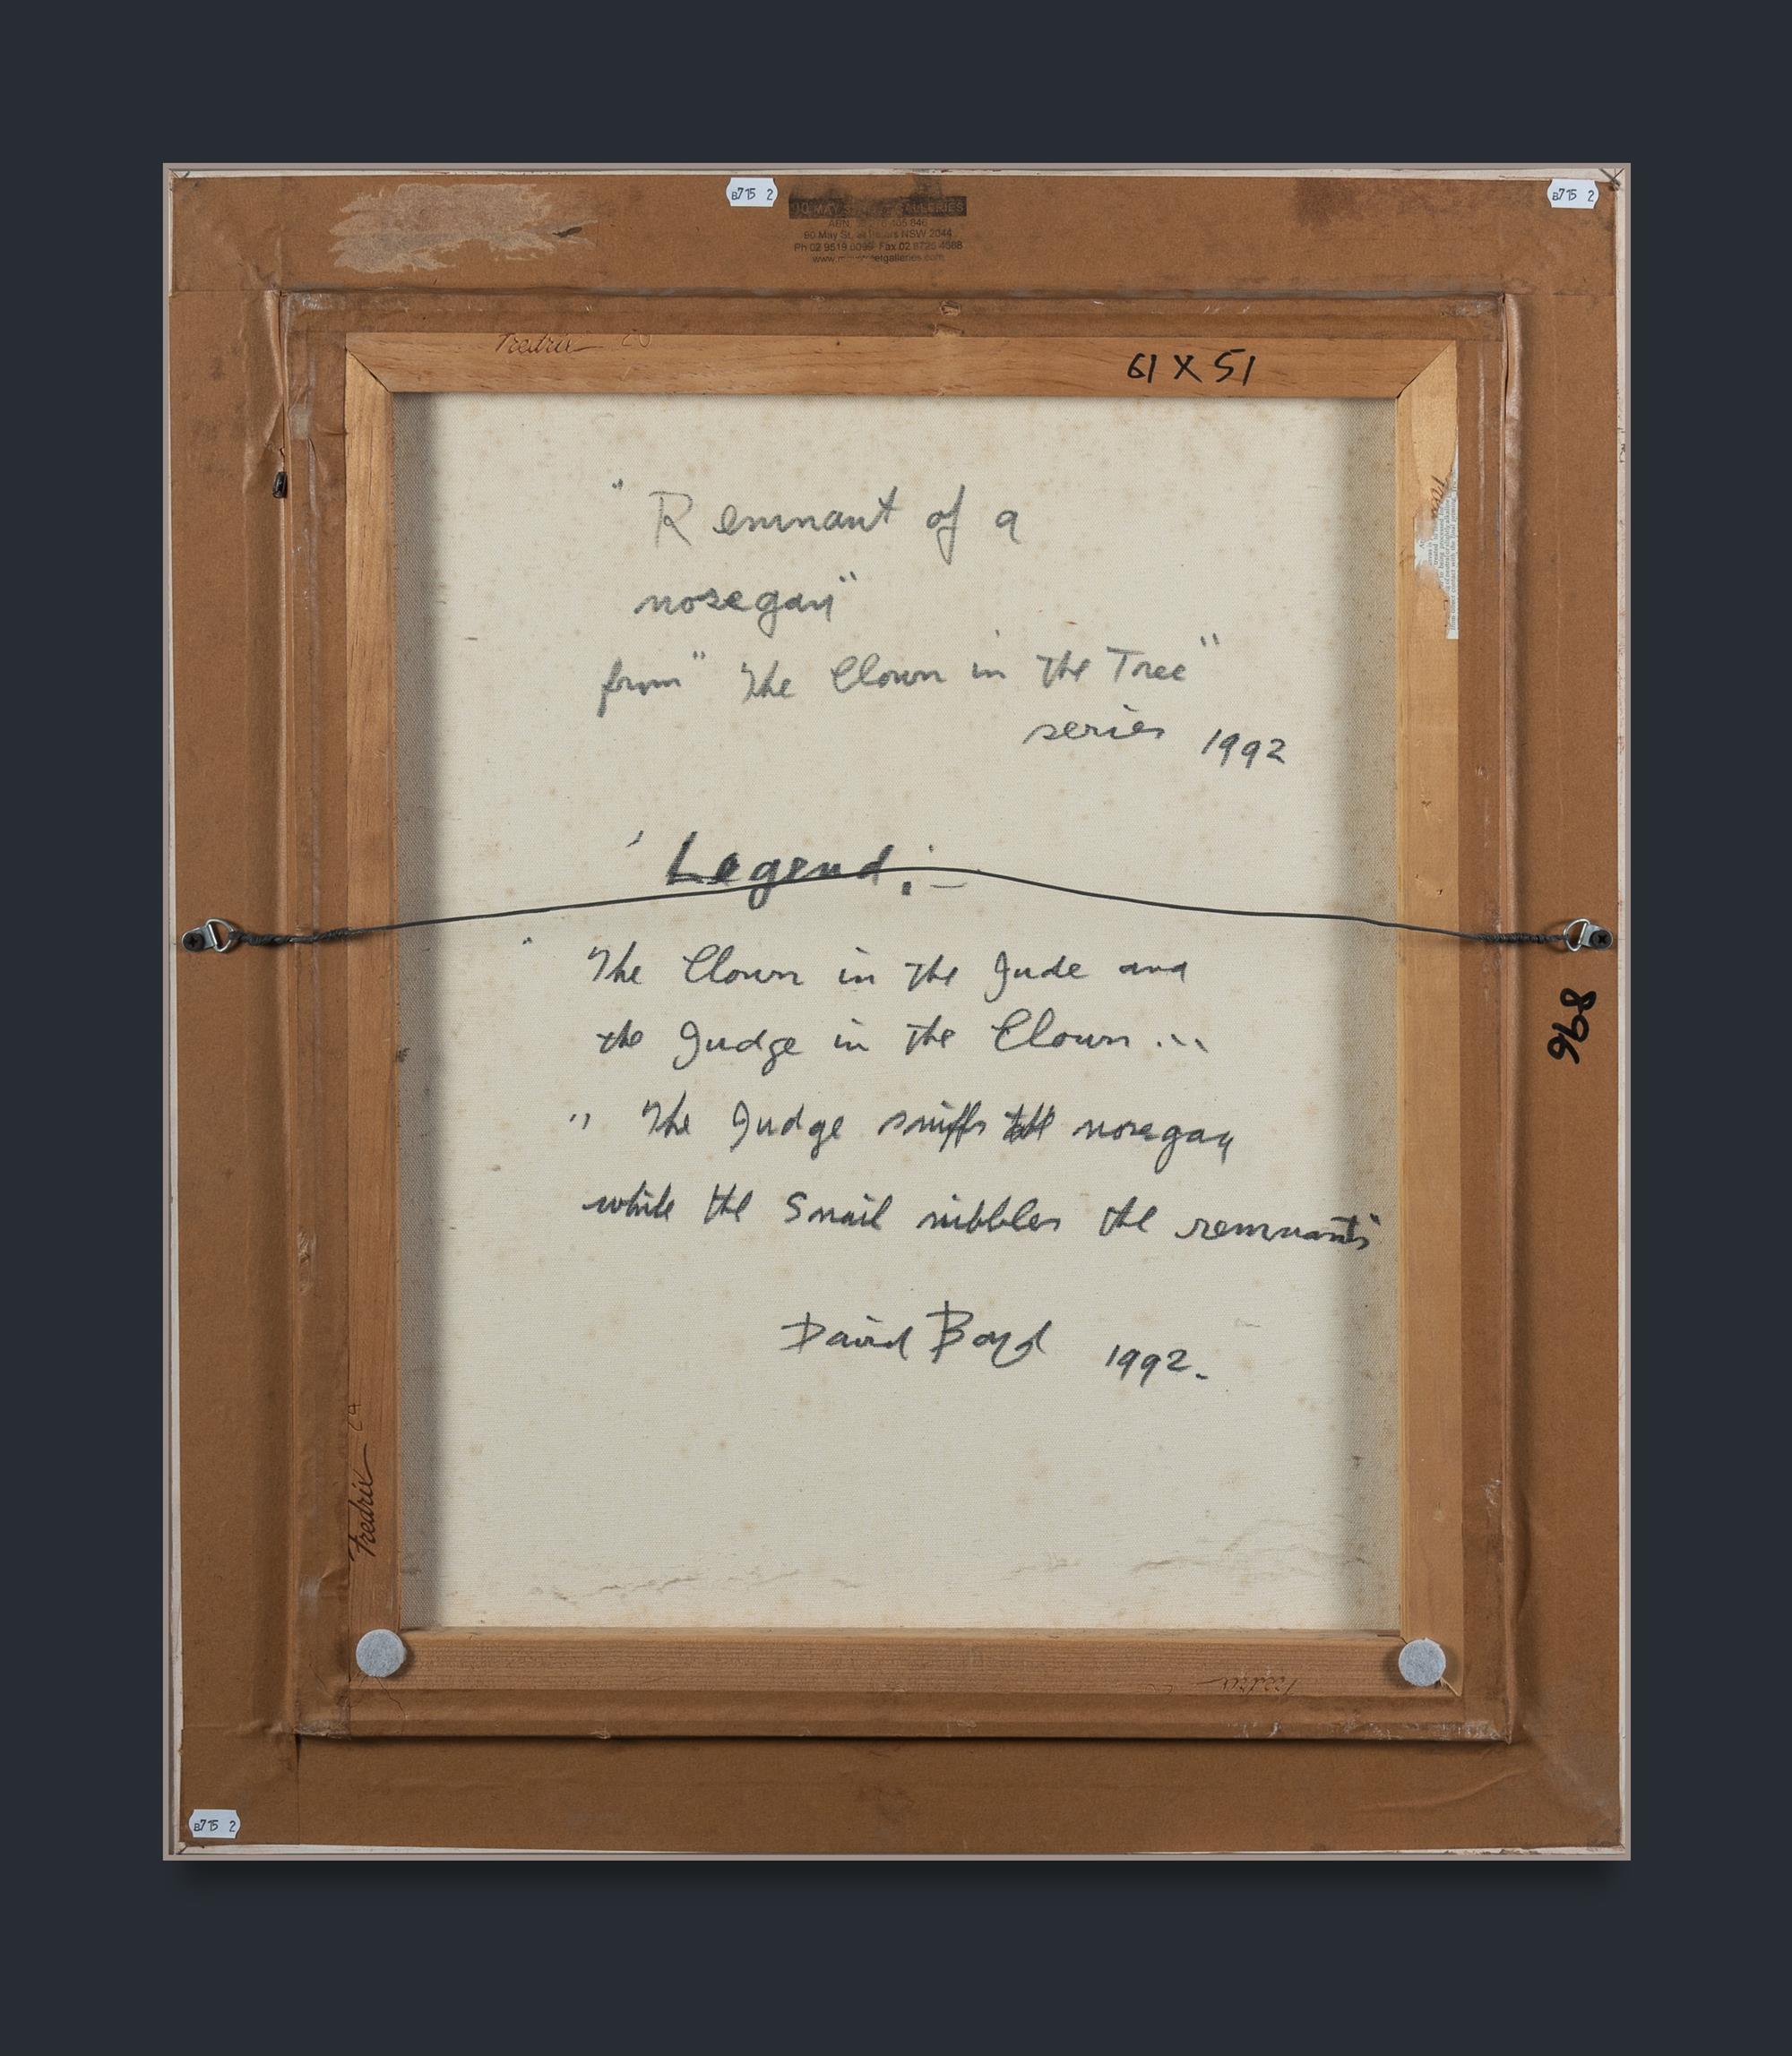 B715 2
B715 2
GALLERIES
ABN
90 May St, NSW 2044
Ph 02 9519 Fax 02
www.
Fredrix 20
61 X 51
" Remnant of a
nosegay"
from " The Clown in The Tree "
series 1992
' Legend : –
" The Clown in The Jude and
the Judge in The Clown ...
" The Judge sniffs the nosegay
while the Snail nibbles the remnants"
David Boyd 1992.
968
Fredrix 24
Fredrix
B715 2